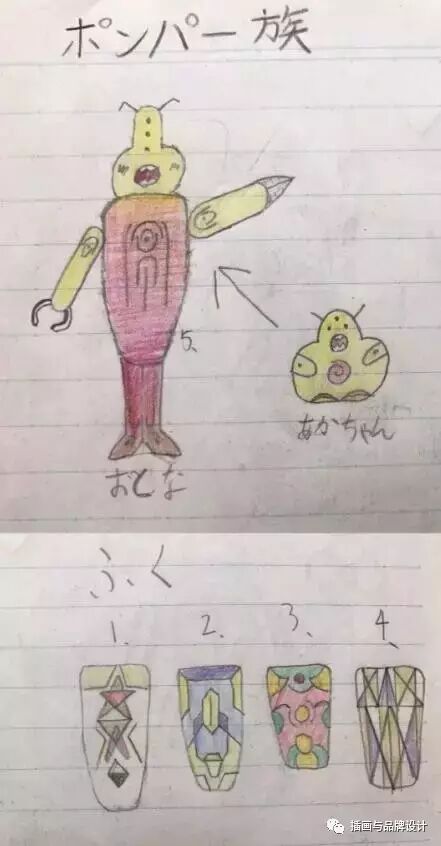 ポンパー族
5、
あかちゃん
おとな
ふく
1. 2. 3、 4、
插画与品牌设计